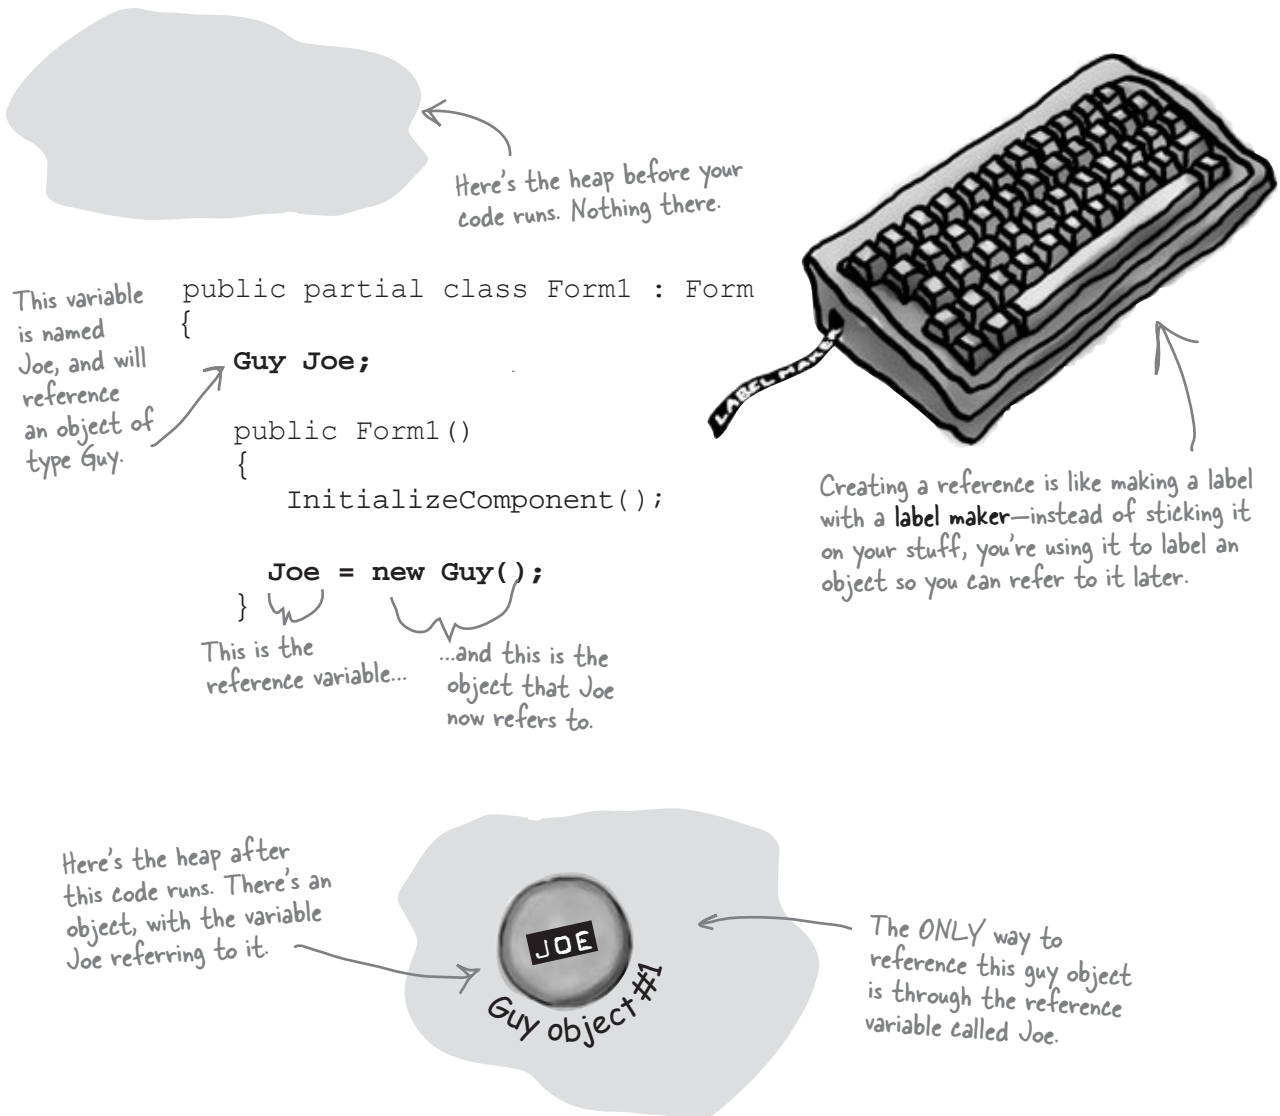 Here's the heap before your
code runs. Nothing there.
This variable
is named
Joe, and will
reference
an object of
type Guy.
public partial class Form1 : Form
{
Guy Joe;
public Form1()
{
InitializeComponent();
Joe = new Guy();
}
This is the
reference variable...
...and this is the
object that Joe
now refers to.
LABEL MAKER
Creating a reference is like making a label
with a label maker—instead of sticking it
on your stuff, you're using it to label an
object so you can refer to it later.
Here's the heap after
this code runs. There's an
object, with the variable
Joe referring to it.
JOE
Guy object #1
The ONLY way to
reference this guy object
is through the reference
variable called Joe.